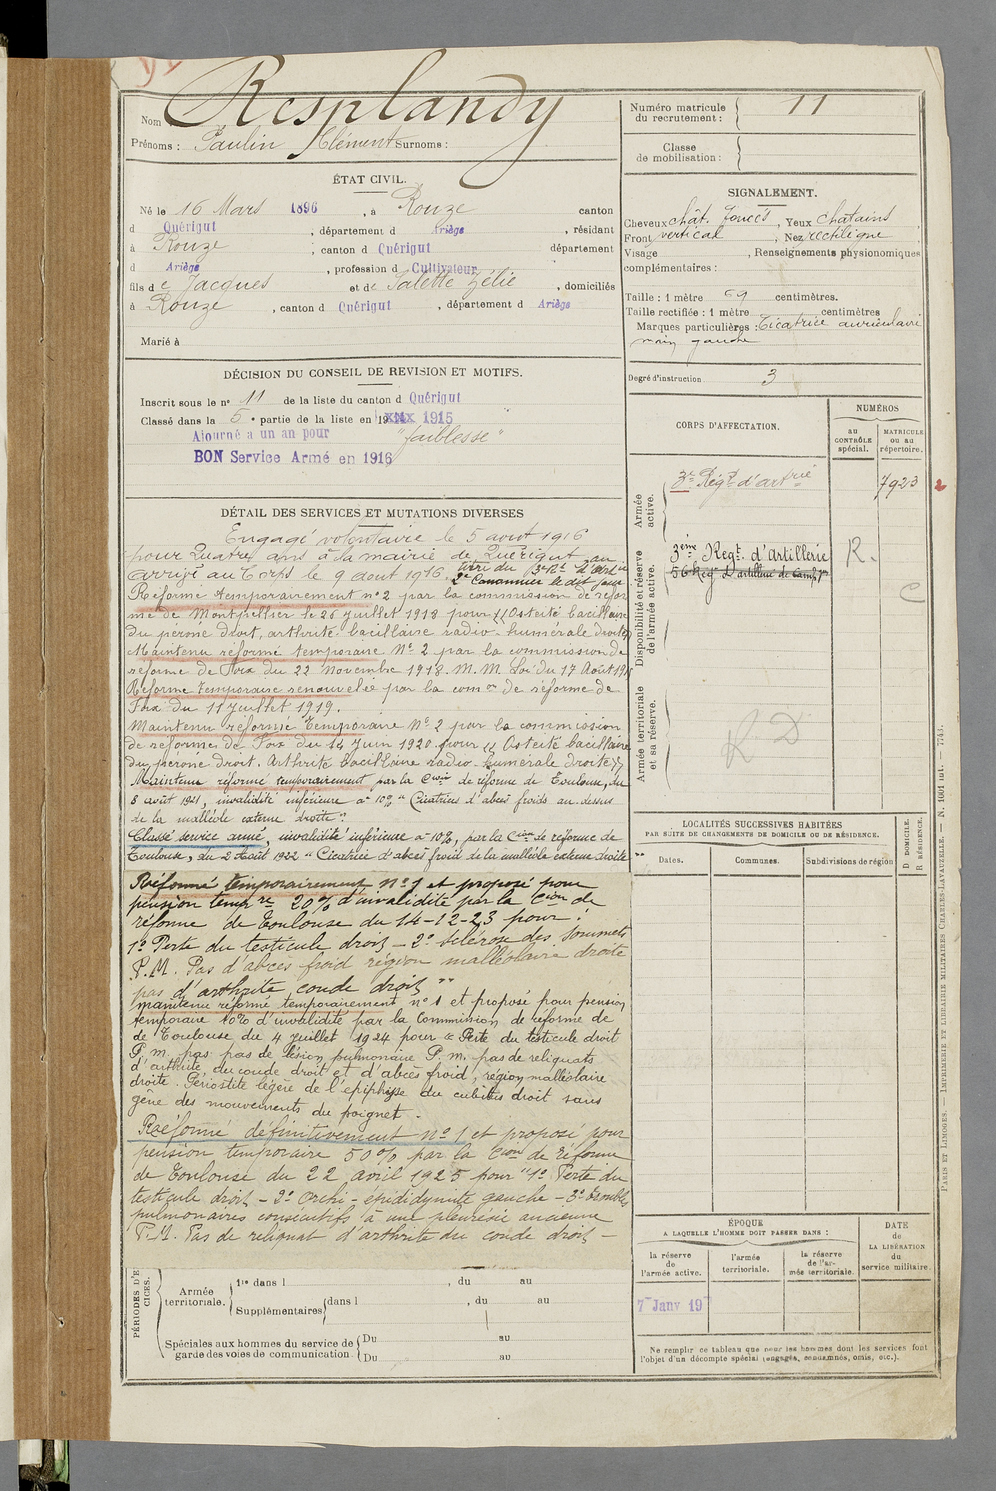 Nom Resplandy
Prénoms : Paulin Clément Surnoms :
Numéro matricule du recrutement : 11
Classe de mobilisation :
ÉTAT CIVIL.
Né le 16 Mars 1896, à Rouze canton
d Quérigut, département d Ariège, résidant
à Rouze, canton d Quérigut département
d Ariège, profession d Cultivateur
fils de Jacques et de Salette Zélie, domiciliés
à Rouze, canton d Quérigut, département d Ariège
Marié à
SIGNALEMENT.
Cheveux chât. foncés, Yeux chatains
Front vertical, Nez rectiligne
Visage, Renseignements physionomiques
complémentaires :
Taille : 1 mètre 69 centimètres.
Taille rectifiée : 1 mètre centimètres
Marques particulières : Cicatrice auriculaire
main gauche
Degré d'instruction 3
DÉCISION DU CONSEIL DE REVISION ET MOTIFS.
Inscrit sous le n° 11 de la liste du canton d Quérigut
Classé dans la 5e partie de la liste en 1915
Ajourné a un an pour "faiblesse"
BON Service Armé en 1916
DÉTAIL DES SERVICES ET MUTATIONS DIVERSES
Engagé volontaire le 5 aout 1916
pour Quatre ans à la mairie de Quérigut au
titre du 3e Rt d'Artie
arrivé au Corps le 9 aout 1916. 2e Canonnier le dit jour
Réformé temporairement n°2 par la commission de réfor
me de Montpellier le 26 juillet 1918 pour "Ostéité bacillaire
du péroné droit, arthrite bacillaire radio-humérale droite"
Maintenu réformé temporaire N° 2 par la commission de
réforme de Foix du 22 novembre 1918. M. M. Loi du 17 Août 19
Réforme temporaire renouvelée par la comon de réforme de
Foix du 11 juillet 1919.
Maintenu réformé temporaire N° 2 par la commission
de réforme de Foix du 14 Juin 1920 pour "Ostéite bacillaire
du péroné droit. Arthrite bacillaire radio-humérale droite"
Maintenu réformé temporairement par la Cion de réforme de Toulouse, du
8 août 1921, invalidité inférieure à 10% "Cicatrices d'abcès froids au dessus
de la malléole externe droite"
Classé service armé, invalidité inférieure à 10%, par la Cion de réforme de
Toulouse, du 2 Août 1922 "Cicatrice d'abcès froid de la malléole externe droite"
Réformé temporairement n° 1 et proposé pour
pension temp re 20% d'invalidité par la Cion de
réforme de Toulouse du 14-12-23 pour :
1° Perte du testicule droit - 2° sclérose des sommets
P.M. Pas d'abcès froid région malléolaire droite
pas d'arthrite coude droit"
Maintenu réformé temporairement n° 1 et proposé pour pension
temporaire 10% d'invalidité par la Commission de réforme de
de Toulouse du 4 Juillet 1924 pour "Perte du testicule droit
P.m. pas pas de lésion pulmonaire P.m. pas de reliquats
d'arthrite du coude droit et d'abcès froid, région malléolaire
droite. Périostite légère de l'épiphyse du cubitus droit sans
gêne des mouvements du poignet.
Réformé définitivement n° 1 et proposé pour
pension temporaire 50% par la Cion de réforme
de Toulouse du 22 avril 1925 pour "1° Perte du
testicule droit - 2° orchi-épididymite gauche - 3°
pulmonaires consécutifs à une pleurésie ancienne
P.M. Pas de reliquat d'arthrite du coude droit -
CORPS D'AFFECTATION.
NUMÉROS
au CONTRÔLE spécial.
MATRICULE ou au répertoire.
Armée active.
3e Régt d'artrie 7923 2
Disponibilité et réserve de l'armée active.
3ème Regt. d'Artillerie R.
C
Armée territoriale et sa réserve.
R D
LOCALITÉS SUCCESSIVES HABITÉES
PAR SUITE DE CHANGEMENTS DE DOMICILE OU DE RÉSIDENCE.
D DOMICILE.
R RÉSIDENCE.
Dates. Communes. Subdivisions de région
ÉPOQUE
A LAQUELLE L'HOMME DOIT PASSER DANS :
DATE de LA LIBÉRATION du service militaire.
la réserve de l'armée active.
l'armée territoriale.
la réserve de l'armée territoriale.
7 Janv 19
Ne remplir ce tableau que pour les hommes dont les services font
l'objet d'un décompte spécial (engagés, condamnés, omis, etc.).
PÉRIODES D'E
CICES.
Armée territoriale.
1re dans l, du au
Supplémentaires dans l, du au
Spéciales aux hommes du service de
garde des voies de communication
Du au
Du au
PARIS ET LIMOGES. — IMPRIMERIE ET LIBRAIRIE MILITAIRES CHARLES-LAVAUZELLE. — N. 1001 int. — 7743.